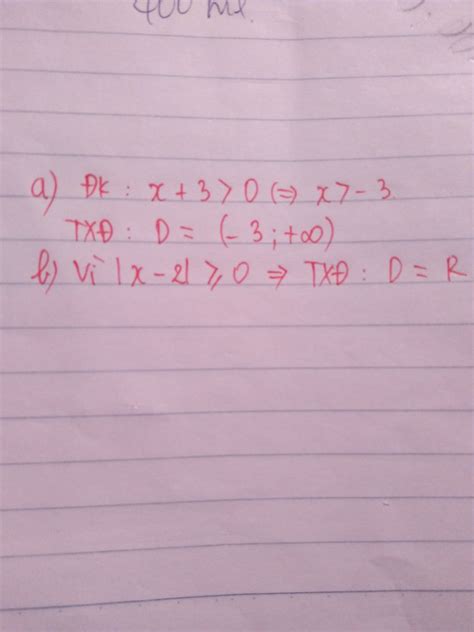 400 ml.
a) ĐK : x + 3 > 0 (=) x > - 3.
TXĐ : D = (- 3 ; +∞)
b) Vì |x - 2| ⩾ 0 ⇒ TXĐ : D = R